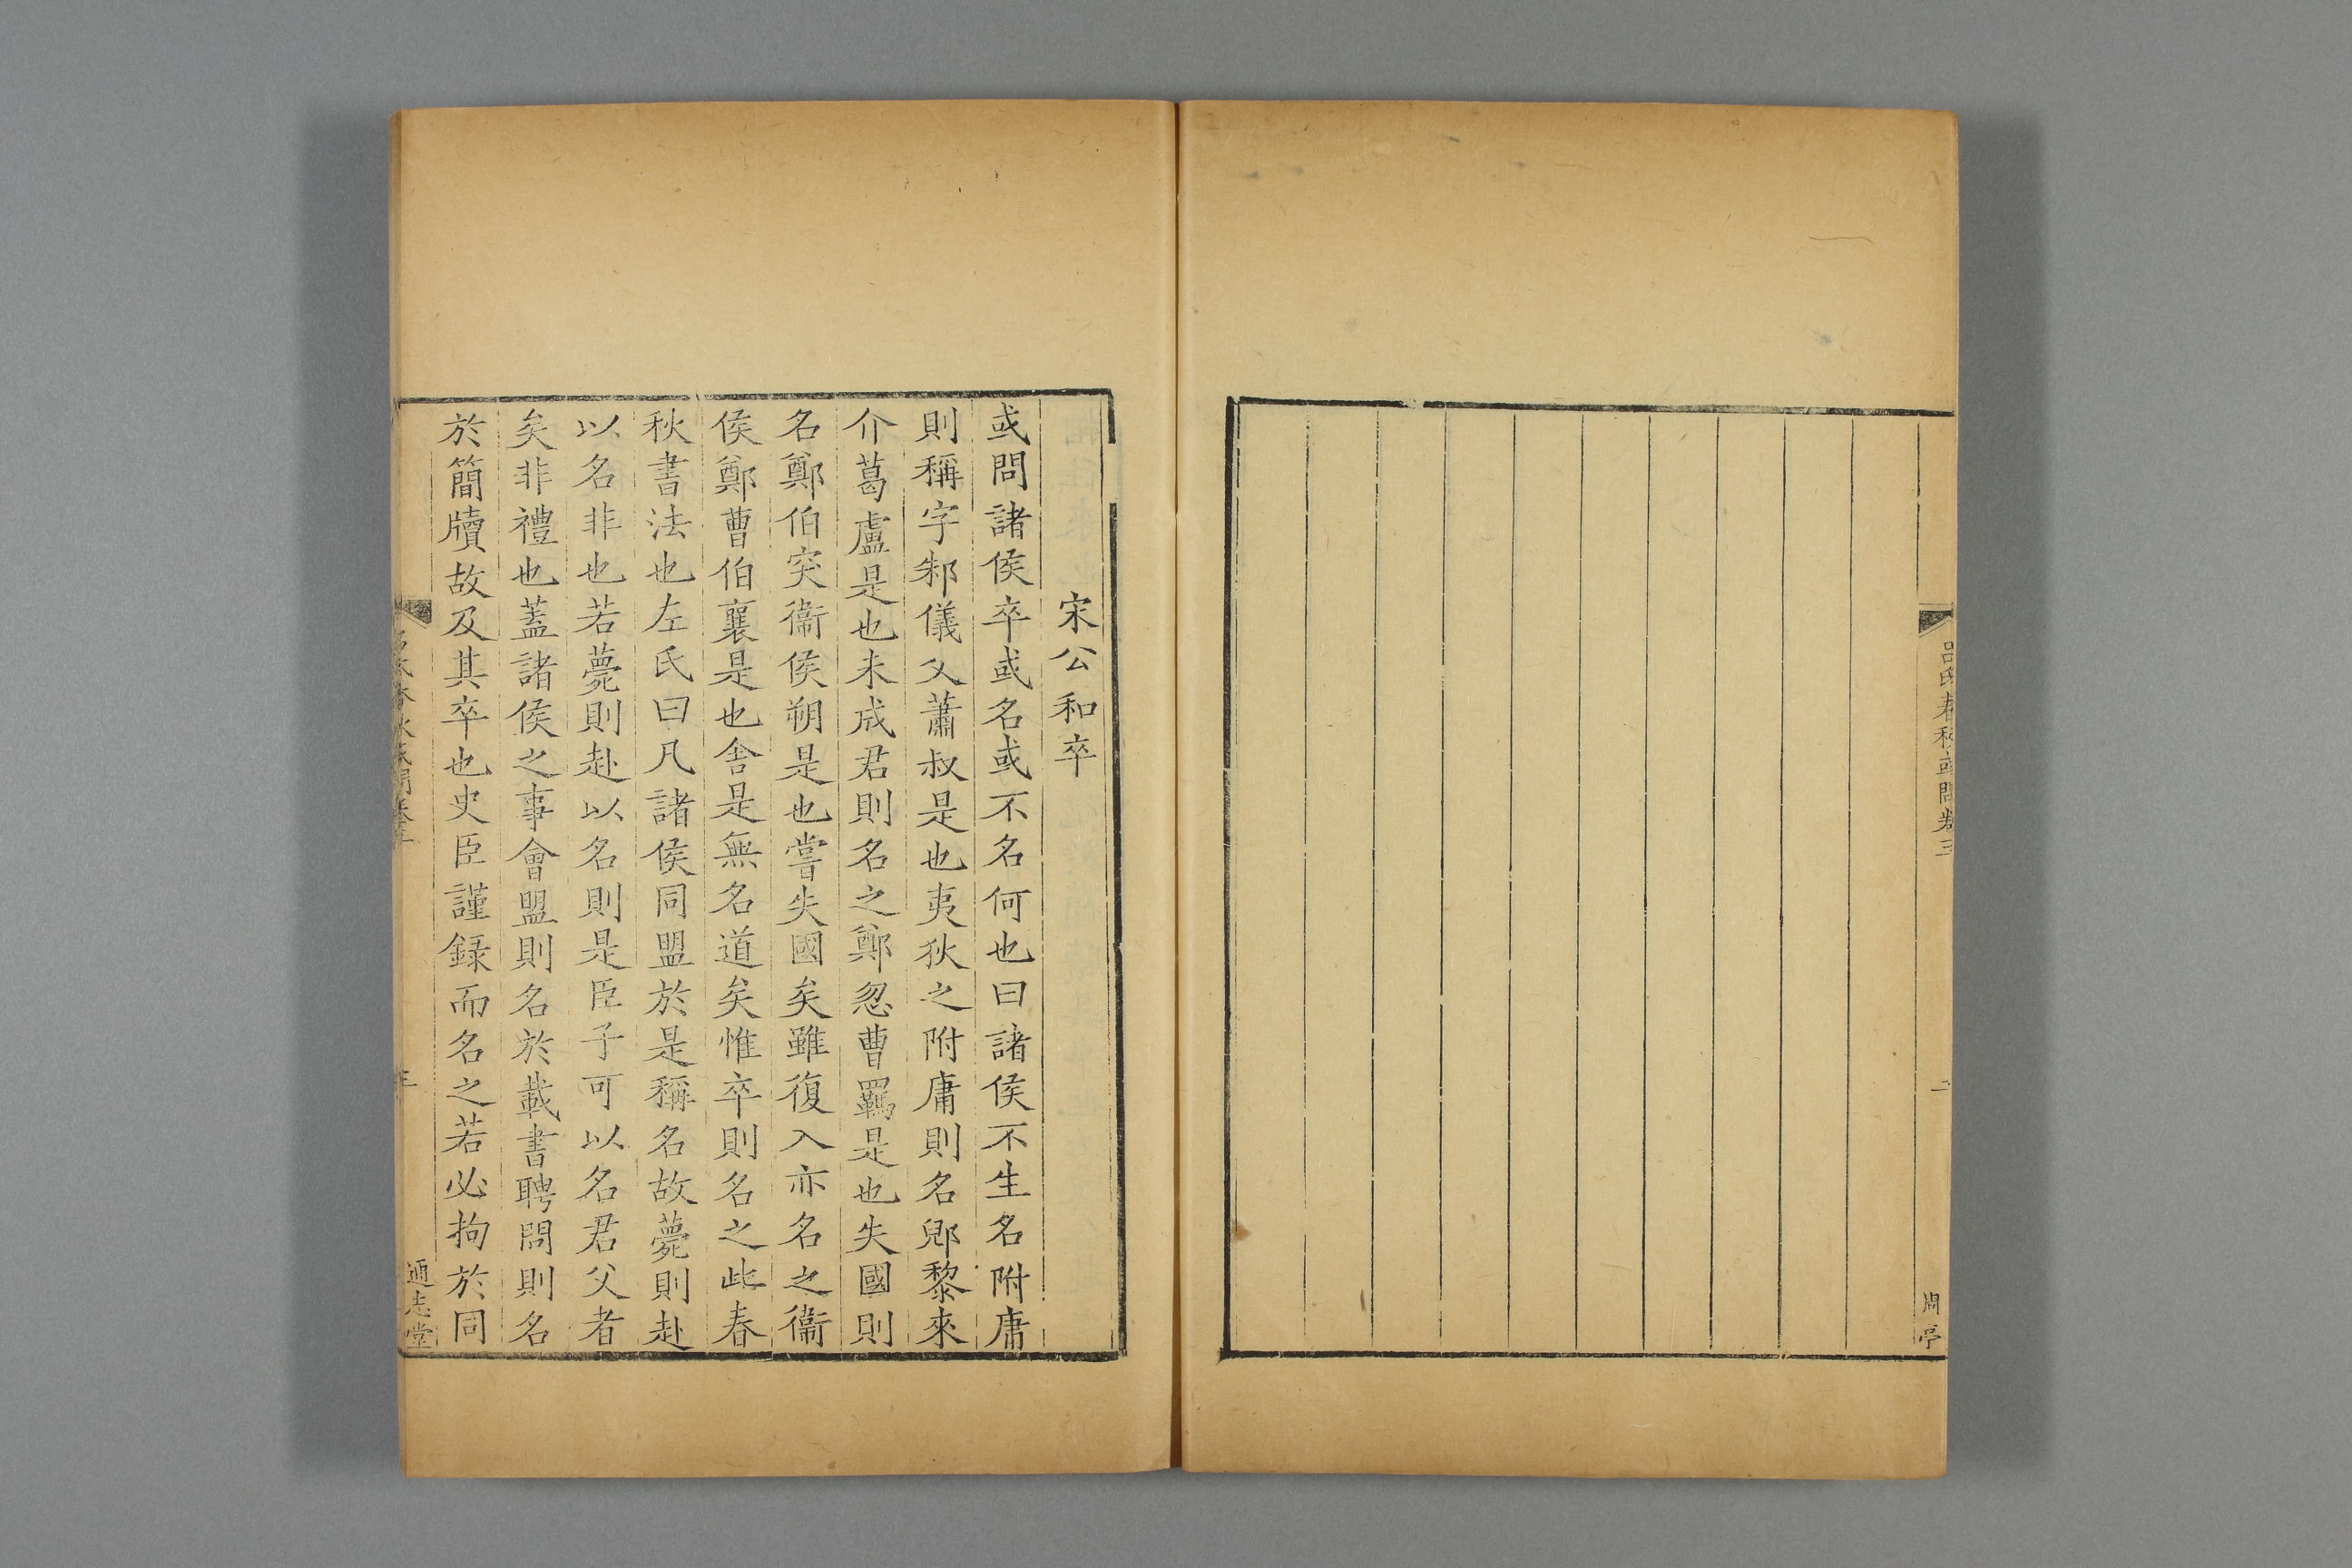 呂氏春秋或問卷三
二
周亭
宋公和卒
或問諸侯卒或名或不名何也曰諸侯不生名附庸
則稱字邾儀父蕭叔是也夷狄之附庸則名郳黎來
介葛盧是也未成君則名之鄭忽曹羈是也失國則
名鄭伯突衞侯朔是也嘗失國矣雖復入亦名之衞
侯鄭曹伯襄是也舍是無名道矣惟卒則名之此春
秋書法也左氏曰凡諸侯同盟於是稱名故薨則赴
以名非也若薨則赴以名則是臣子可以名君父者
矣非禮也蓋諸侯之事會盟則名於載書聘問則名
於簡牘故及其卒也史臣謹録而名之若必拘於同
通志堂